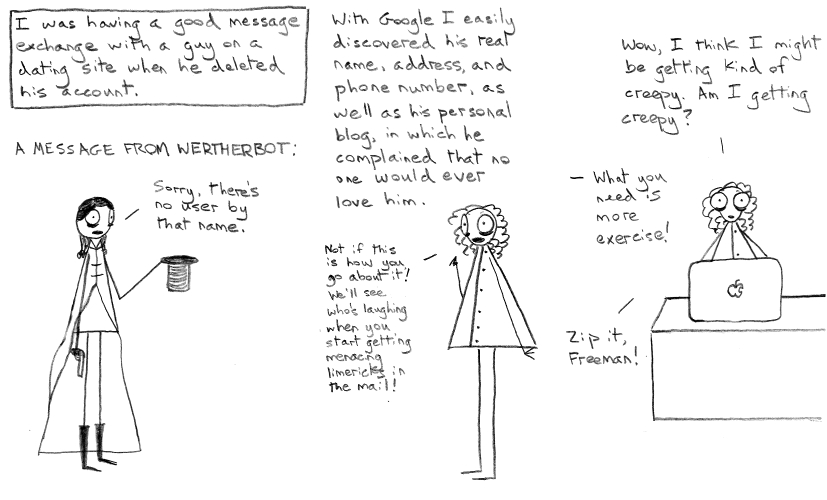 I was having a good message
exchange with a guy on a
dating site when he deleted
his account.
A MESSAGE FROM WERTHERBOT:
Sorry, there's
no user by
that name.
With Google I easily
discovered his real
name, address, and
phone number, as
well as his personal
blog, in which he
complained that no
one would ever
love him.
Not if this
is how you
go about it!
We'll see
who's laughing
when you
start getting
menacing
limericks in
the mail!
Wow, I think I might
be getting kind of
creepy. Am I getting
creepy?
— What you
need is
more
exercise!
Zip it,
Freeman!